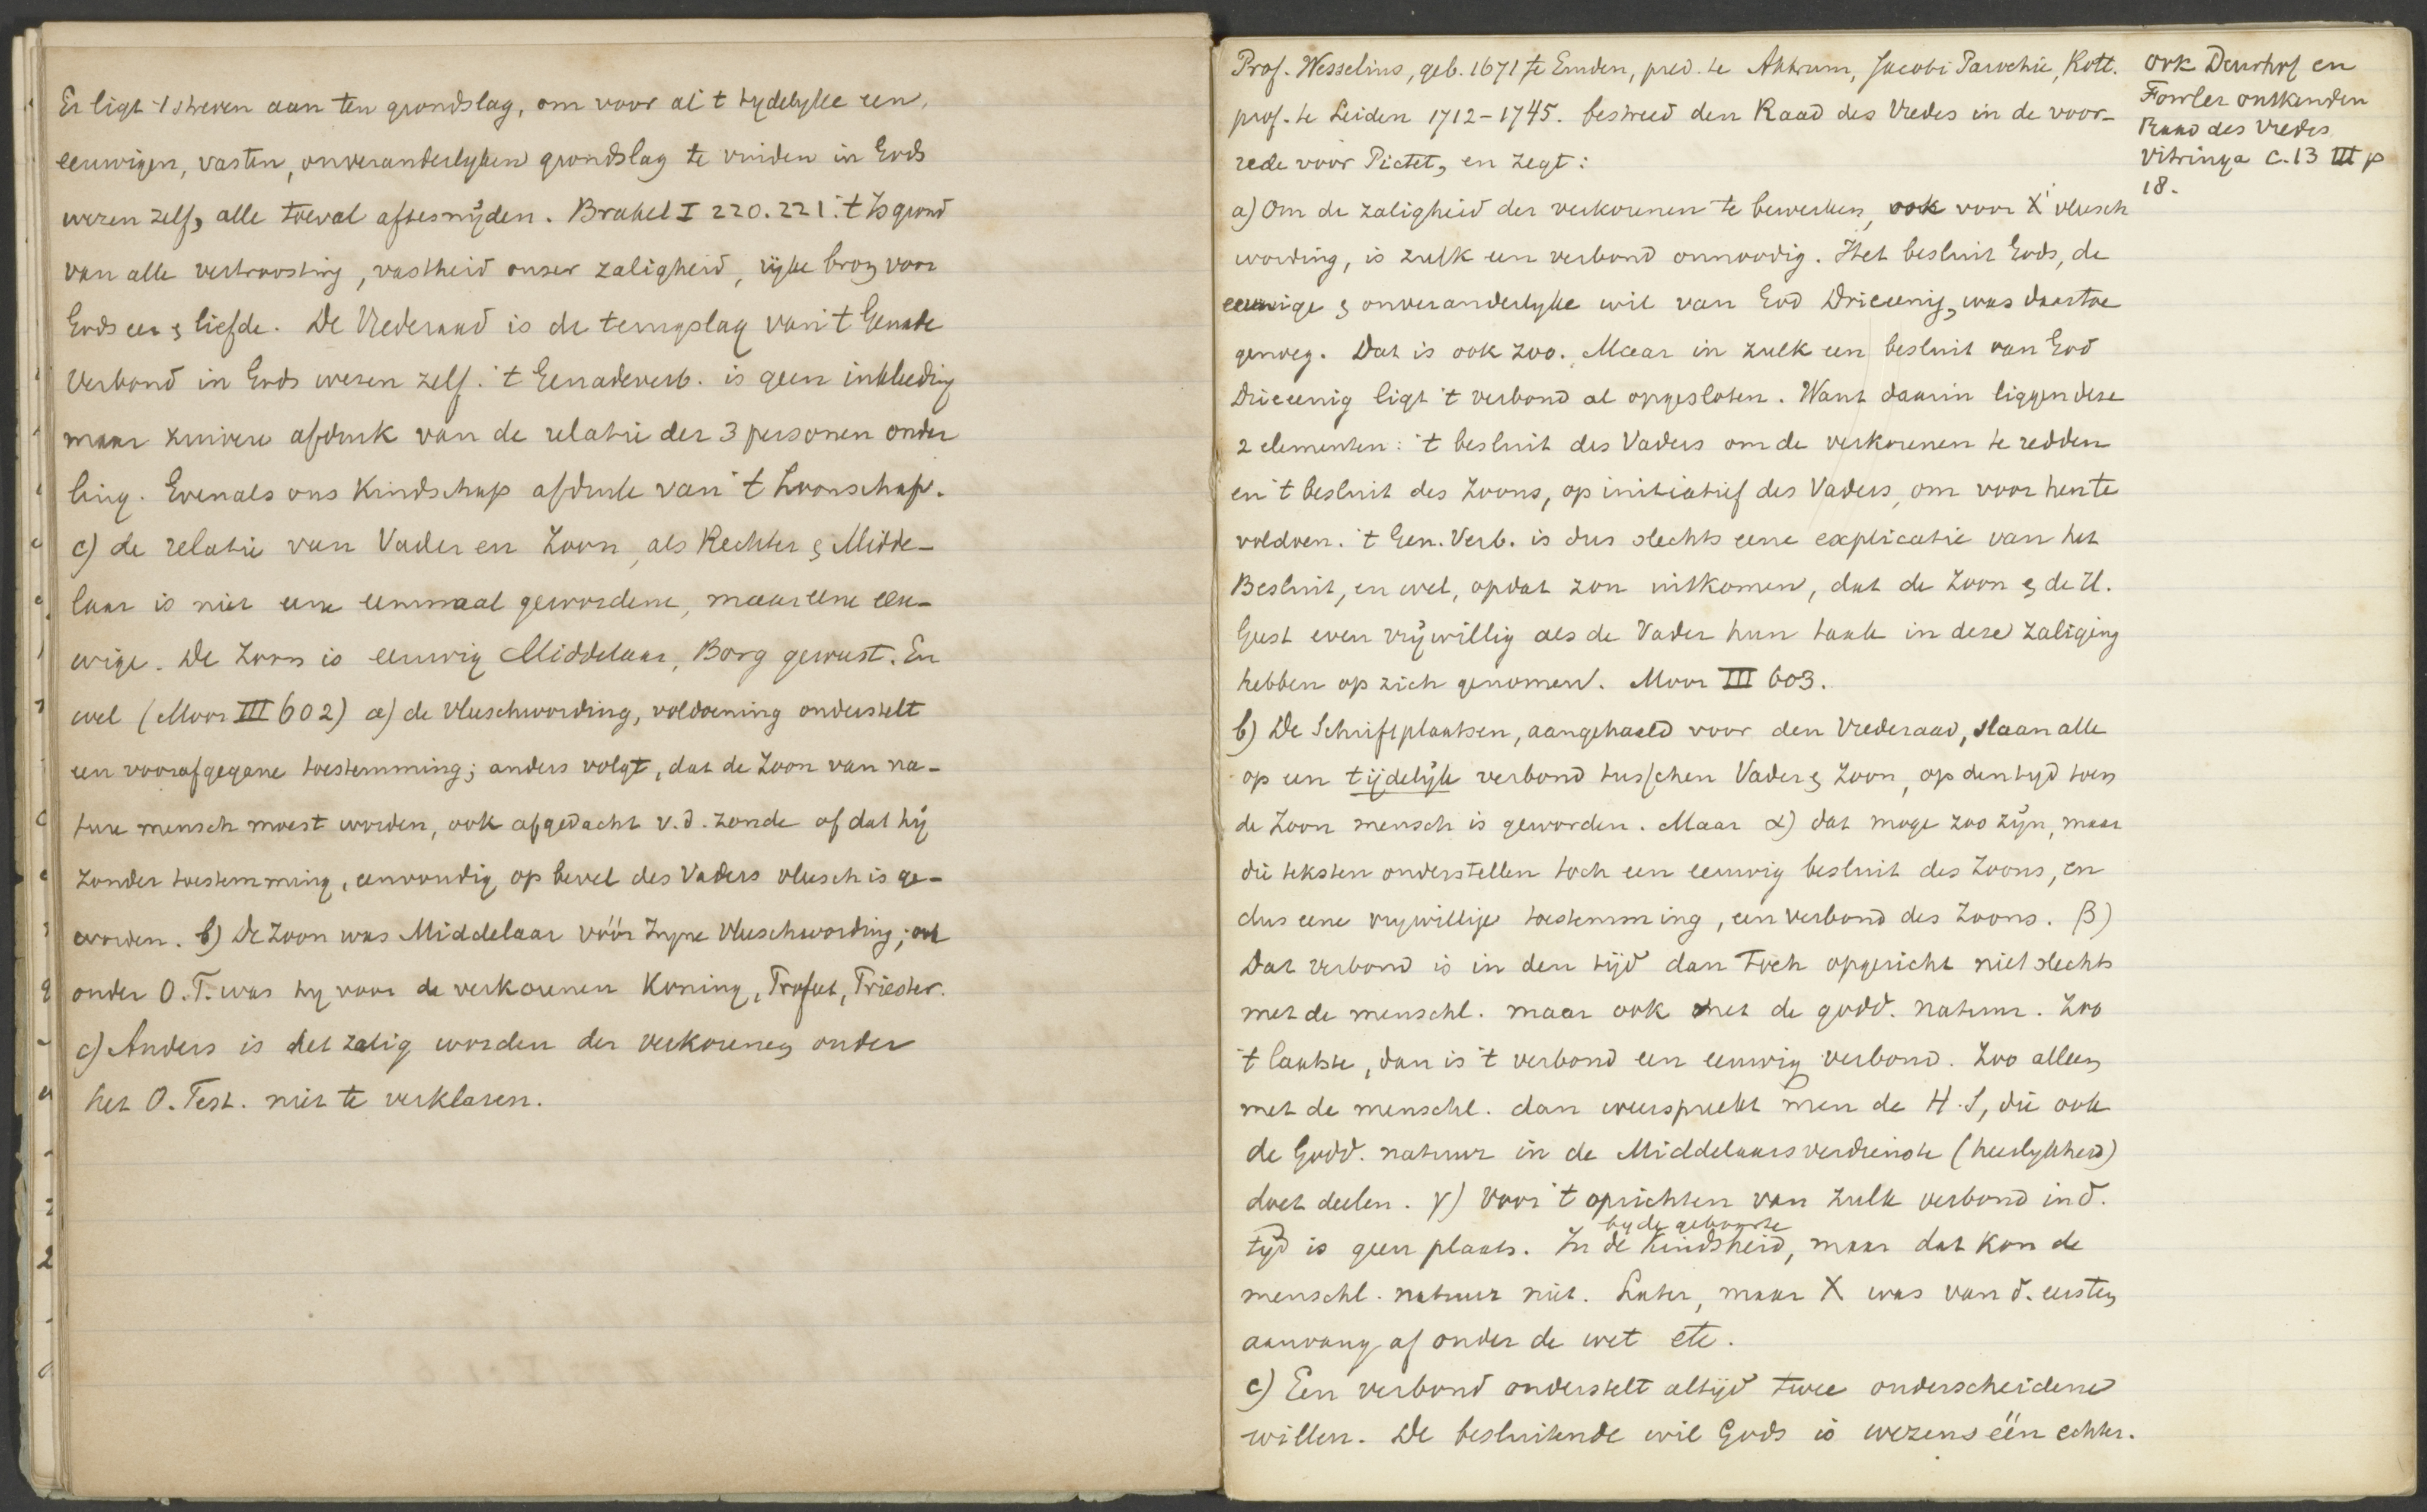 Er ligt 't streven aan ten grondslag, om voor al 't tydelyke een,
eeuwigen, vasten, onveranderlyken grondslag te vinden in Gods
wezen zelf, alle toeval aftesnyden. Brakel I 220. 221. 't Is grond
van alle vertroosting, vastheid onzer zaligheid, ryke bron voor
Gods eer & liefde. De Vrederaad is de terugslag van 't Genade
Verbond in Gods wezen zelf. 't Genadeverb. is geen inkleeding
maar zuivere afdruk van de relatie der 3 personen onder
ling. Evenals ons Kindschap afdruk van 't Zoonschap.
c) de relatie van Vader en Zoon, als Rechter & Midde-
laar is niet eene eenmaal gewordene, maar eene eeu-
wige. De Zoon is eeuwig Middelaar, Borg geweest. En
wel (Moor III 602) a) de vleeschwording, voldoening onderstelt
een voorafgegane toestemming; anders volgt, dat de Zoon van na-
ture mensch moest worden, ook afgedacht v. d. zonde of dat hij
zonder toestemming, eenvoudig op bevel des Vaders vleesch is ge-
worden. b) De Zoon was Middelaar vóór Zyne Vleeschwording; ook
onder O.T. was hy voor de verkorenen Koning, Profeet, Priester.
c) Anders is het zalig worden der verkorenen onder
het O. Test. niet te verklaren.
Prof. Wesselius, geb. 1671 te Emden, pred. te Akkrum, Jacobi Parochie, Rott.
prof. te Leiden 1712-1745. bestreed den Raad des Vredes in de voor-
rede voor Pictet, en zegt:
a) Om de zaligheid der verkorenen te bewerken, ook voor X' vleesch
wording, is zulk een verbond onnoodig. Het besluit Gods, de
eeuwige & onveranderlyke wil van God Drieeenig, was daartoe
genoeg. Dat is ook zoo. Maar in zulk een besluit van God
Drieeenig ligt 't verbond al opgesloten. Want daarin liggen deze
2 elementen: 't besluit des Vaders om de verkorenen te redden
en 't besluit des Zoons, op initiatief des Vaders, om voor hen te
voldoen. 't Gen. Verb. is dus slechts eene explicatie van het
Besluit, en wel, opdat zou uitkomen, dat de Zoon & de H.
Geest even vrywillig als de Vader hun taak in deze zaliging
hebben op zich genomen. Moor III 603.
b) De Schriftplaatsen, aangehaald voor den Vrederaad, slaan alle
op een tijdelijk verbond tusschen Vader & Zoon, op den tyd toen
de Zoon mensch is geworden. Maar α) dat moge zoo zijn, maar
die teksten onderstellen toch een eeuwig besluit des Zoons, en
dus eene vrywillige toestemming, een verbond des Zoons. β)
Dat verbond is in den tijd dan toch opgericht niet slechts
met de menschl. maar ook met de godd. natuur. Zoo
't laatste, dan is 't verbond een eeuwig verbond. Zoo alleen
met de menschl. dan weerspreekt men de H. S, die ook
de Godd. natuur in de Middelaarsverdienste (heerlykheid)
doet deelen. γ) Voor 't oprichten van zulk verbond in d.
by de geboorte
tyd is geen plaats. In de Kindsheid, maar dat kon de
menschl. natuur niet. Later, maar X was van d. eersten
aanvang af onder de wet etc.
c) Een verbond onderstelt altijd twee onderscheidene
willen. De besluitende wil Gods is wezens één echter.
ook Deurhof en
Fowler ontkenden
Raad des Vredes
Vitringa C. 13 III p
18.